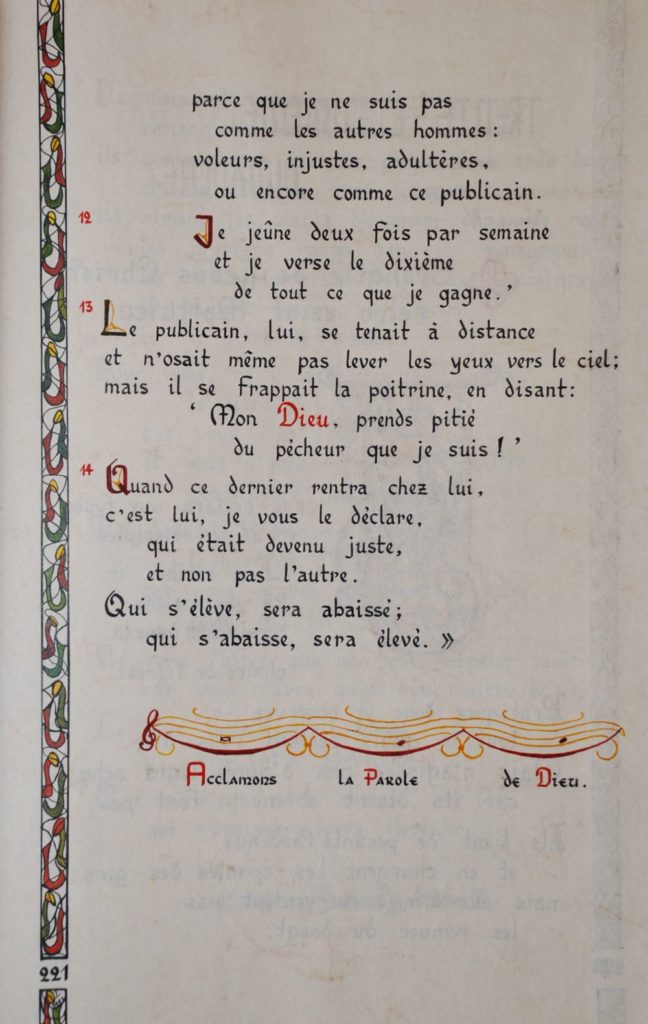 parce que je ne suis pas
comme les autres hommes :
voleurs, injustes, adultères,
ou encore comme ce publicain.
12
Je jeûne deux fois par semaine
et je verse le dixième
de tout ce que je gagne.’
13
Le publicain, lui, se tenait à distance
et n’osait même pas lever les yeux vers le ciel;
mais il se frappait la poitrine, en disant:
‘ Mon Dieu, prends pitié
du pécheur que je suis ! ’
14
Quand ce dernier rentra chez lui,
c’est lui, je vous le déclare,
qui était devenu juste,
et non pas l’autre.
Qui s’élève, sera abaissé;
qui s’abaisse, sera élevé. »
Acclamons la Parole de Dieu.
221